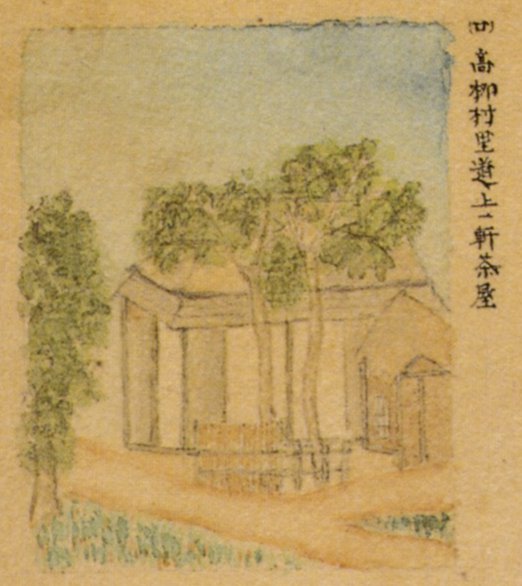 (廿) 高柳村里道上一軒茶屋